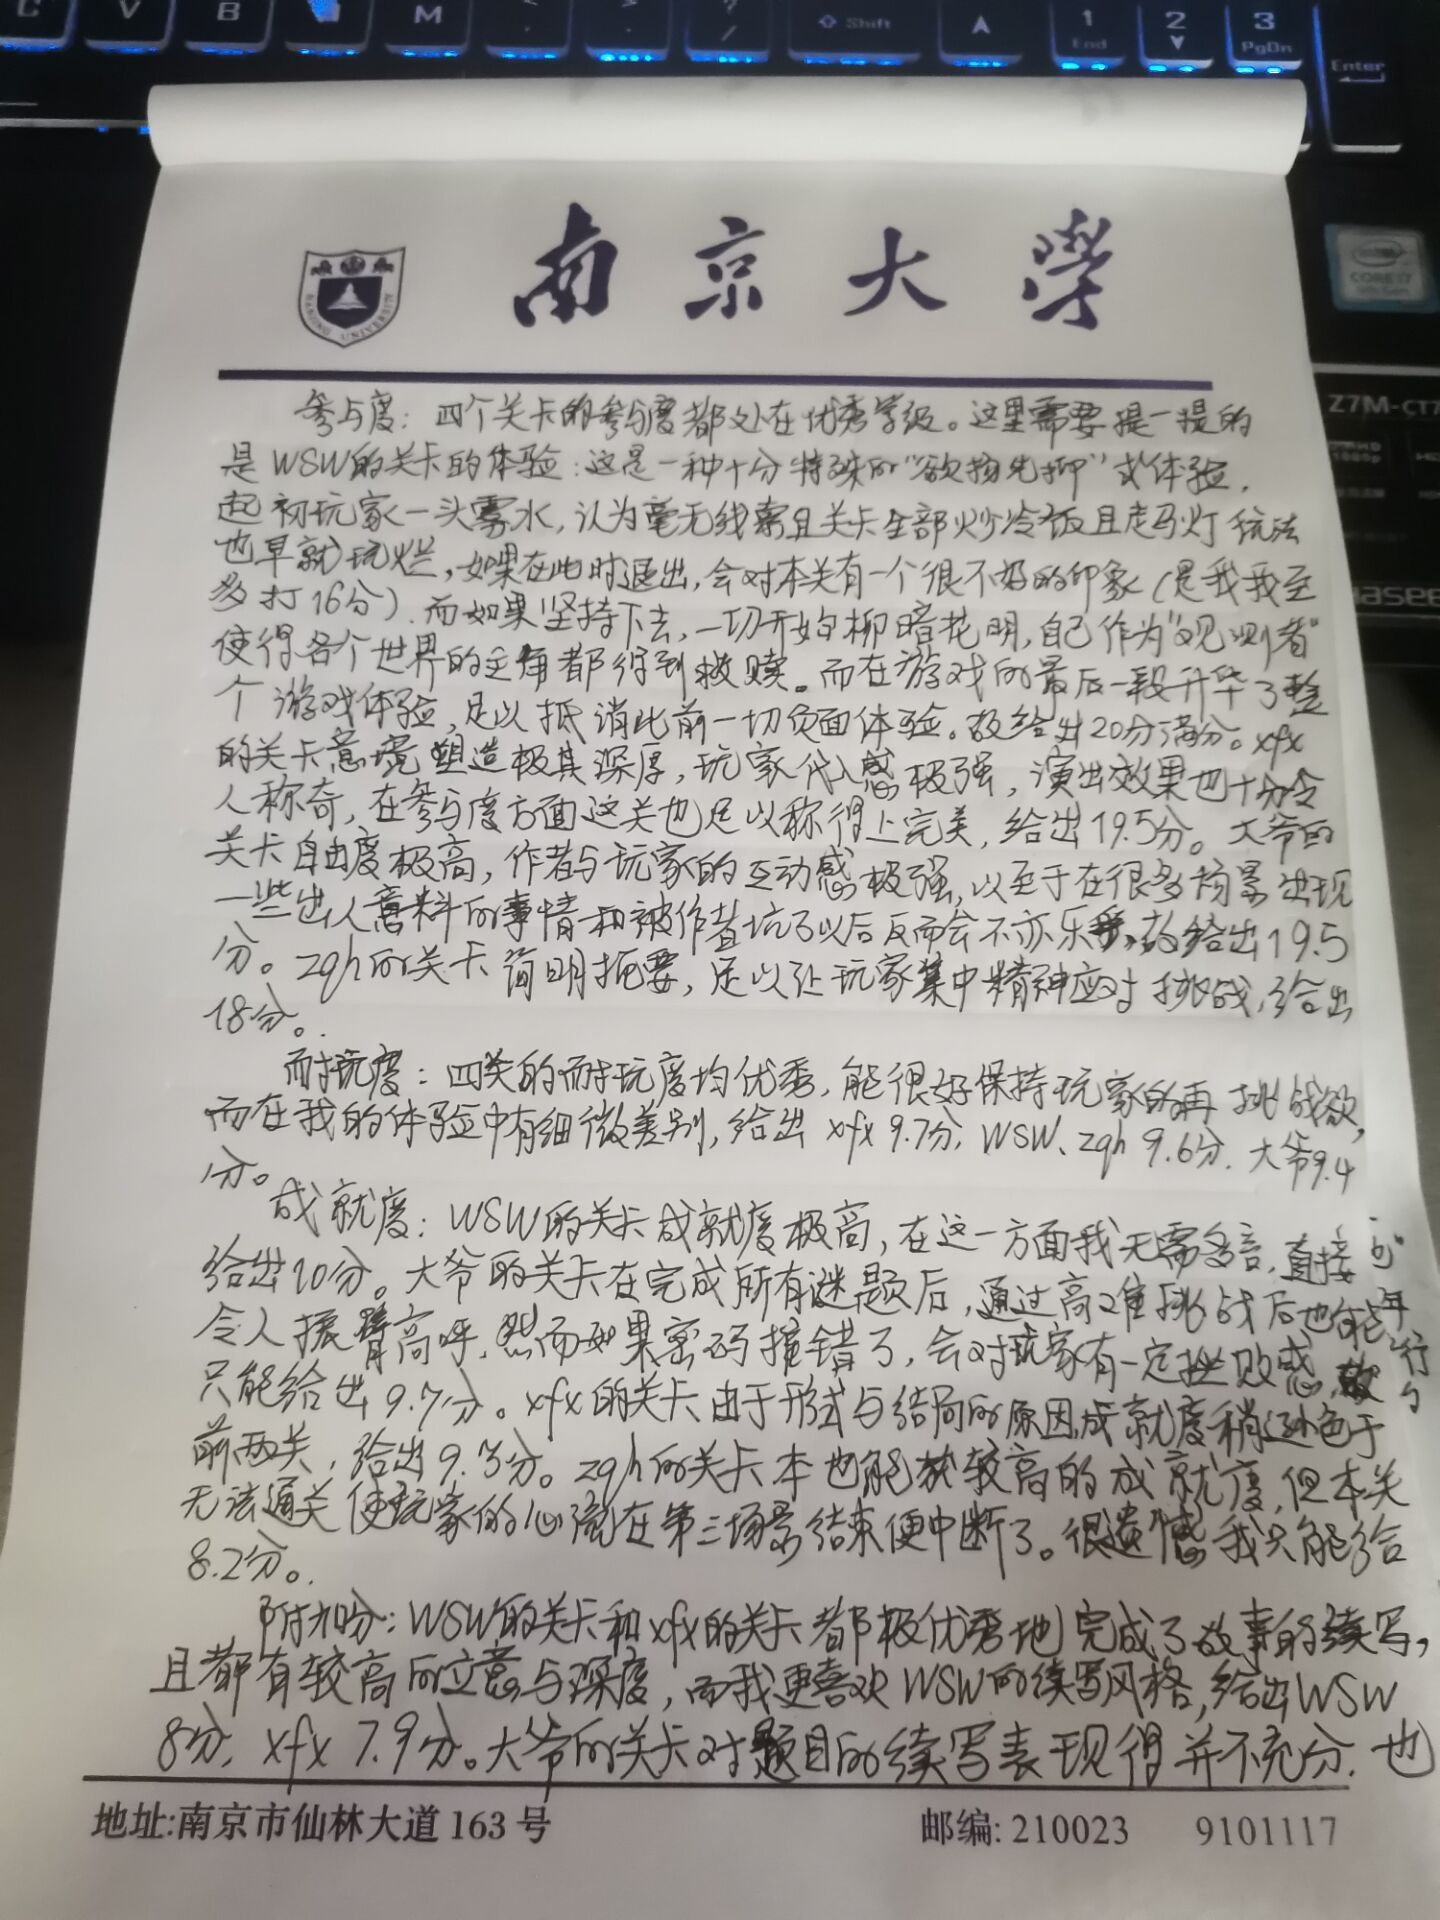 C V B N M
Shift
1 End
2
3 PgDn
Enter
CORE i7
Z7M-CT7
1080p
南京大學
NANJING UNIVERSITY
参与度：四个关卡的参与度都处在优秀学级。这里需要提一提的
是WSW的关卡的体验：这是一种十分特殊的“欲扬先抑”式体验，
起初玩家一头雾水，认为毫无线索且关卡全部炒冷饭且走马灯玩法
也早就玩烂，如果在此时退出，会对本关有一个很不好的印象（是我我至
多打16分）．而如果坚持下去，一切开始柳暗花明，自己作为“观测者”
使得各个世界的主角都得到救赎。而在游戏的最后一段升华了整
个游戏体验，足以抵消此前一切负面体验。故给出20分满分。xfx
的关卡意境塑造极其深厚，玩家代入感极强，演出效果也十分令
人称奇，在参与度方面这关也足以称得上完美，给出19.5分。大爷的
关卡自由度极高，作者与玩家的互动感极强，以至于在很多场景出现
一些出人意料的事情和被作者坑了以后反而会不亦乐乎，故给出19.5
分。zqh的关卡简明扼要，足以让玩家集中精神应对挑战，给出
18分。
耐玩度：四关的耐玩度均优秀，能很好保持玩家的再挑战欲，
而在我的体验中有细微差别，给出xfx 9.7分，WSW、zqh 9.6分．大爷9.4
分。
成就度：WSW的关卡成就度极高，在这一方面我无需多言，直接
给出10分。大爷的关卡在完成所有谜题后，通过高难挑战后也能
令人振臂高呼，然而如果密码撞错了，会对玩家有一定挫败感，故
只能给出9.7分。xfx的关卡由于形式与结局的原因成就度稍逊色于
前两关，给出9.3分。zqh的关卡本也能获较高的成就度，但本关
无法通关使玩家的心流在第三场景结束便中断了。很遗憾我只能给
8.2分。
附加分：WSW的关卡和xfx的关卡都极优秀地完成了故事的续写，
且都有较高的立意与深度，而我更喜欢WSW的续写风格，给出WSW
8分，xfx 7.9分。大爷的关卡对题目的续写表现得并不充分．也
地址:南京市仙林大道163号 邮编: 210023 9101117